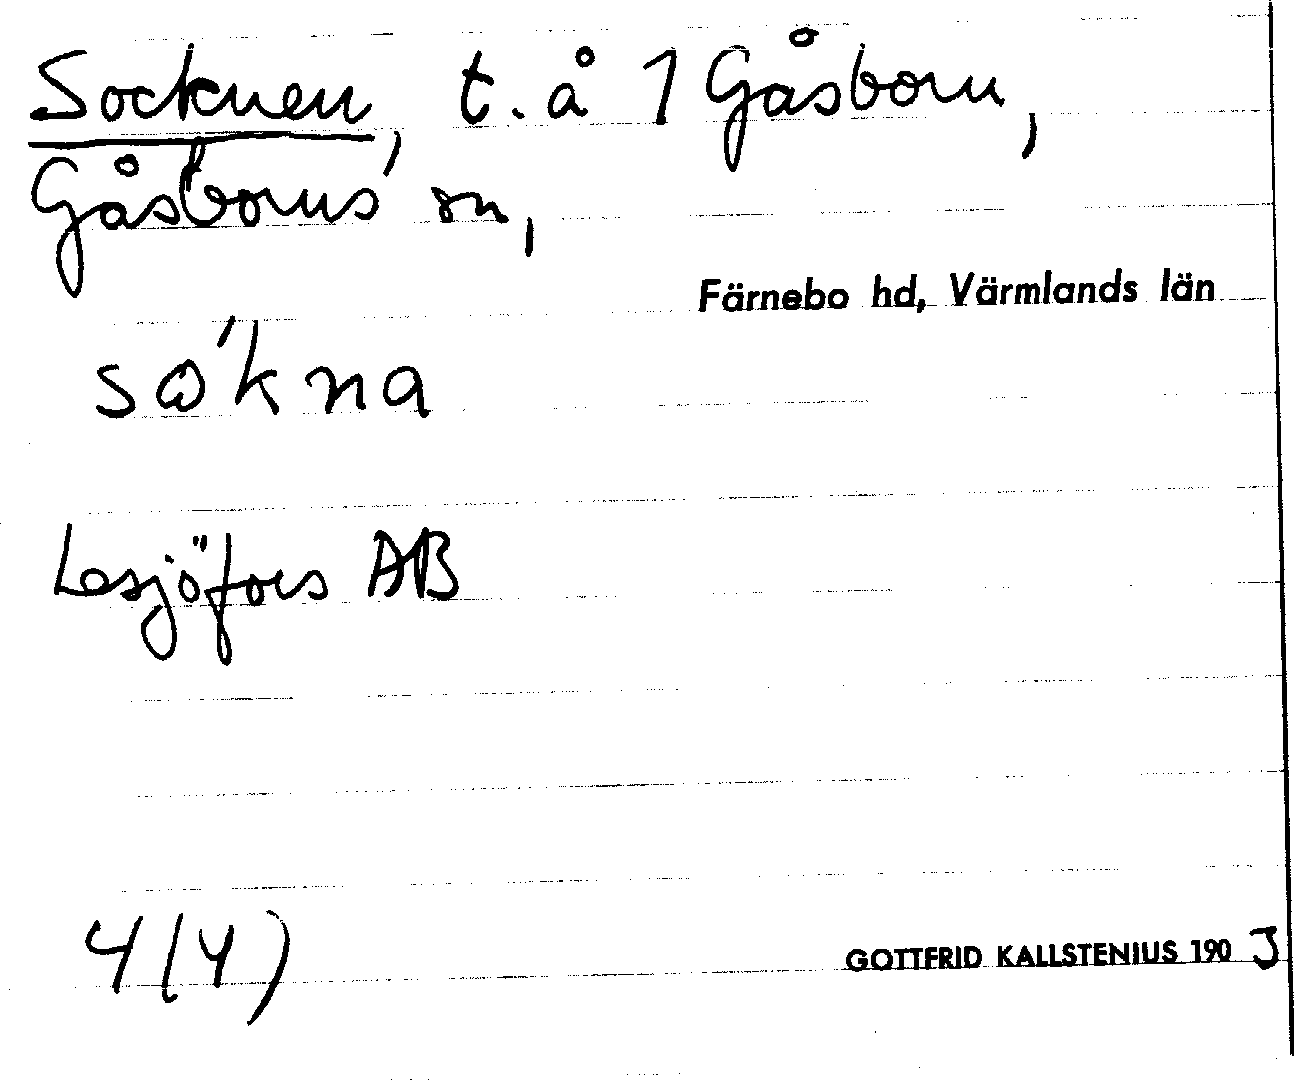 Socknen, t. å 1 Gåsborn,
Gåsborns sn,
Färnebo hd, Värmlands län
Lesjöfors AB
4(4)
GOTTFRID KALLSTENIUS 190